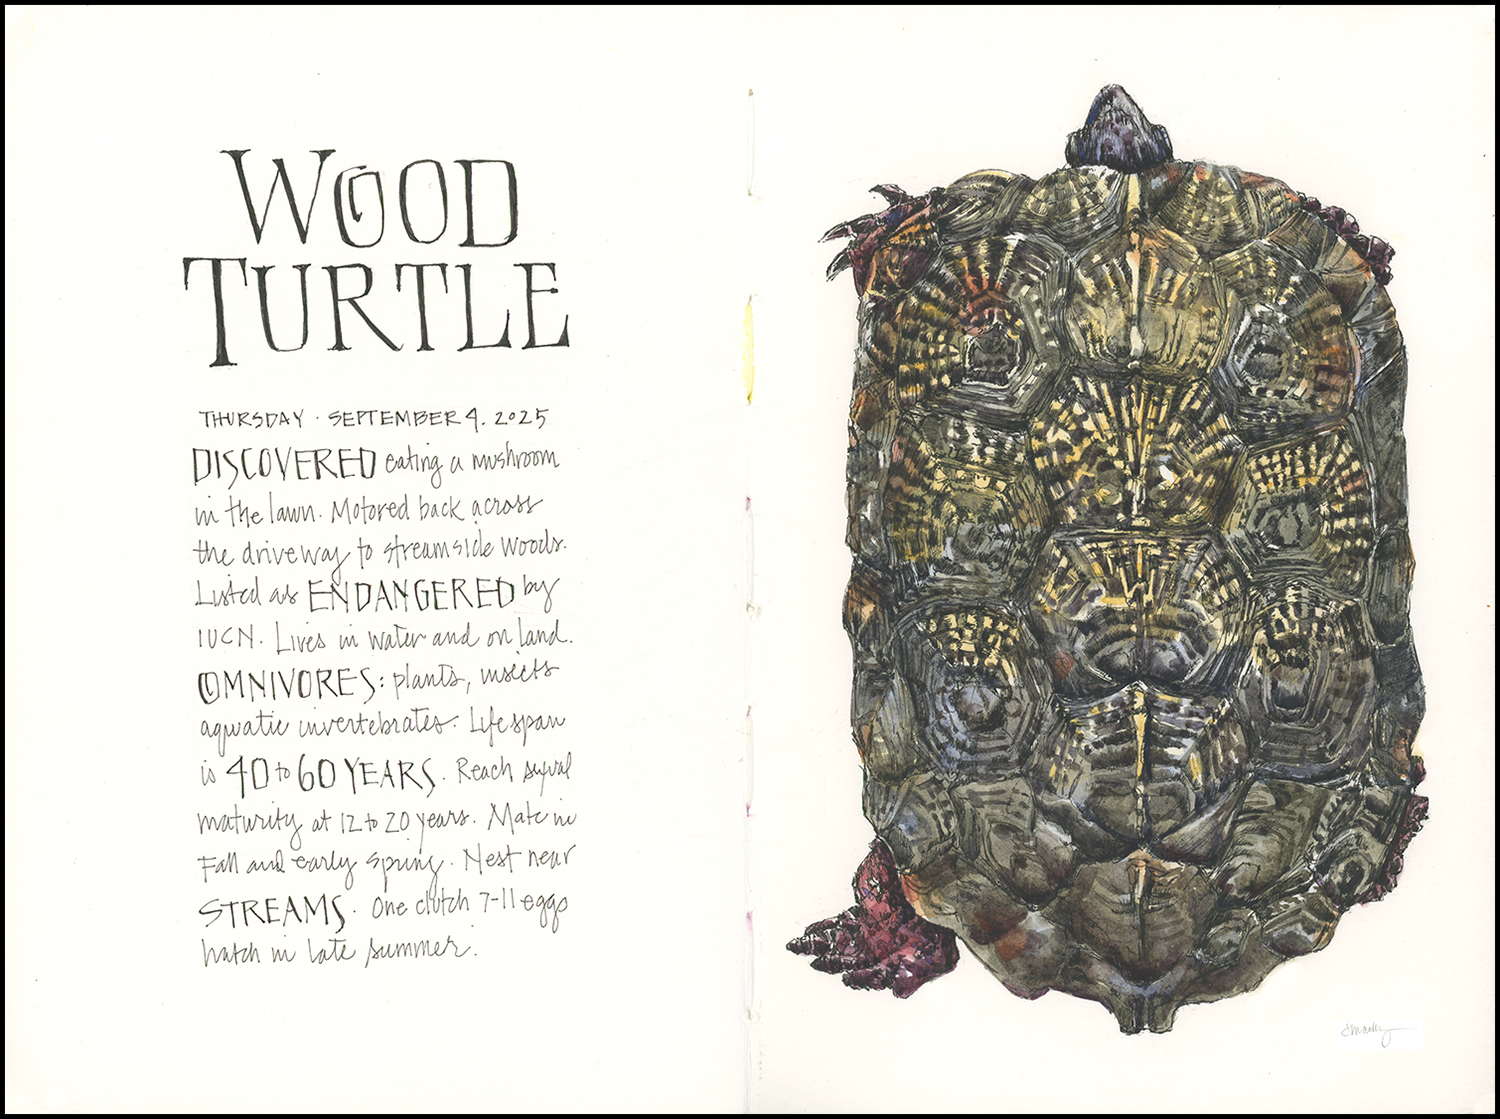 WOOD
TURTLE
THURSDAY · SEPTEMBER 4. 2025
DISCOVERED eating a mushroom
in the lawn. Motored back across
the driveway to streamside woods.
Listed as ENDANGERED by
IUCN. Lives in water and on land.
OMNIVORES: plants, insects
aquatic invertebrates. Life span
is 40 to 60 YEARS. Reach sexual
maturity at 12 to 20 years. Mate in
Fall and early spring. Nest near
STREAMS. One clutch 7-11 eggs
hatch in late summer.